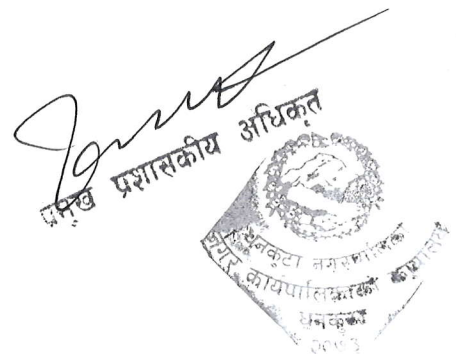 प्रमुख प्रशासकीय अधिकृत
धनकुटा नगरपालिका
नगर कार्यपालिकाको कार्यालय
धनकुटा